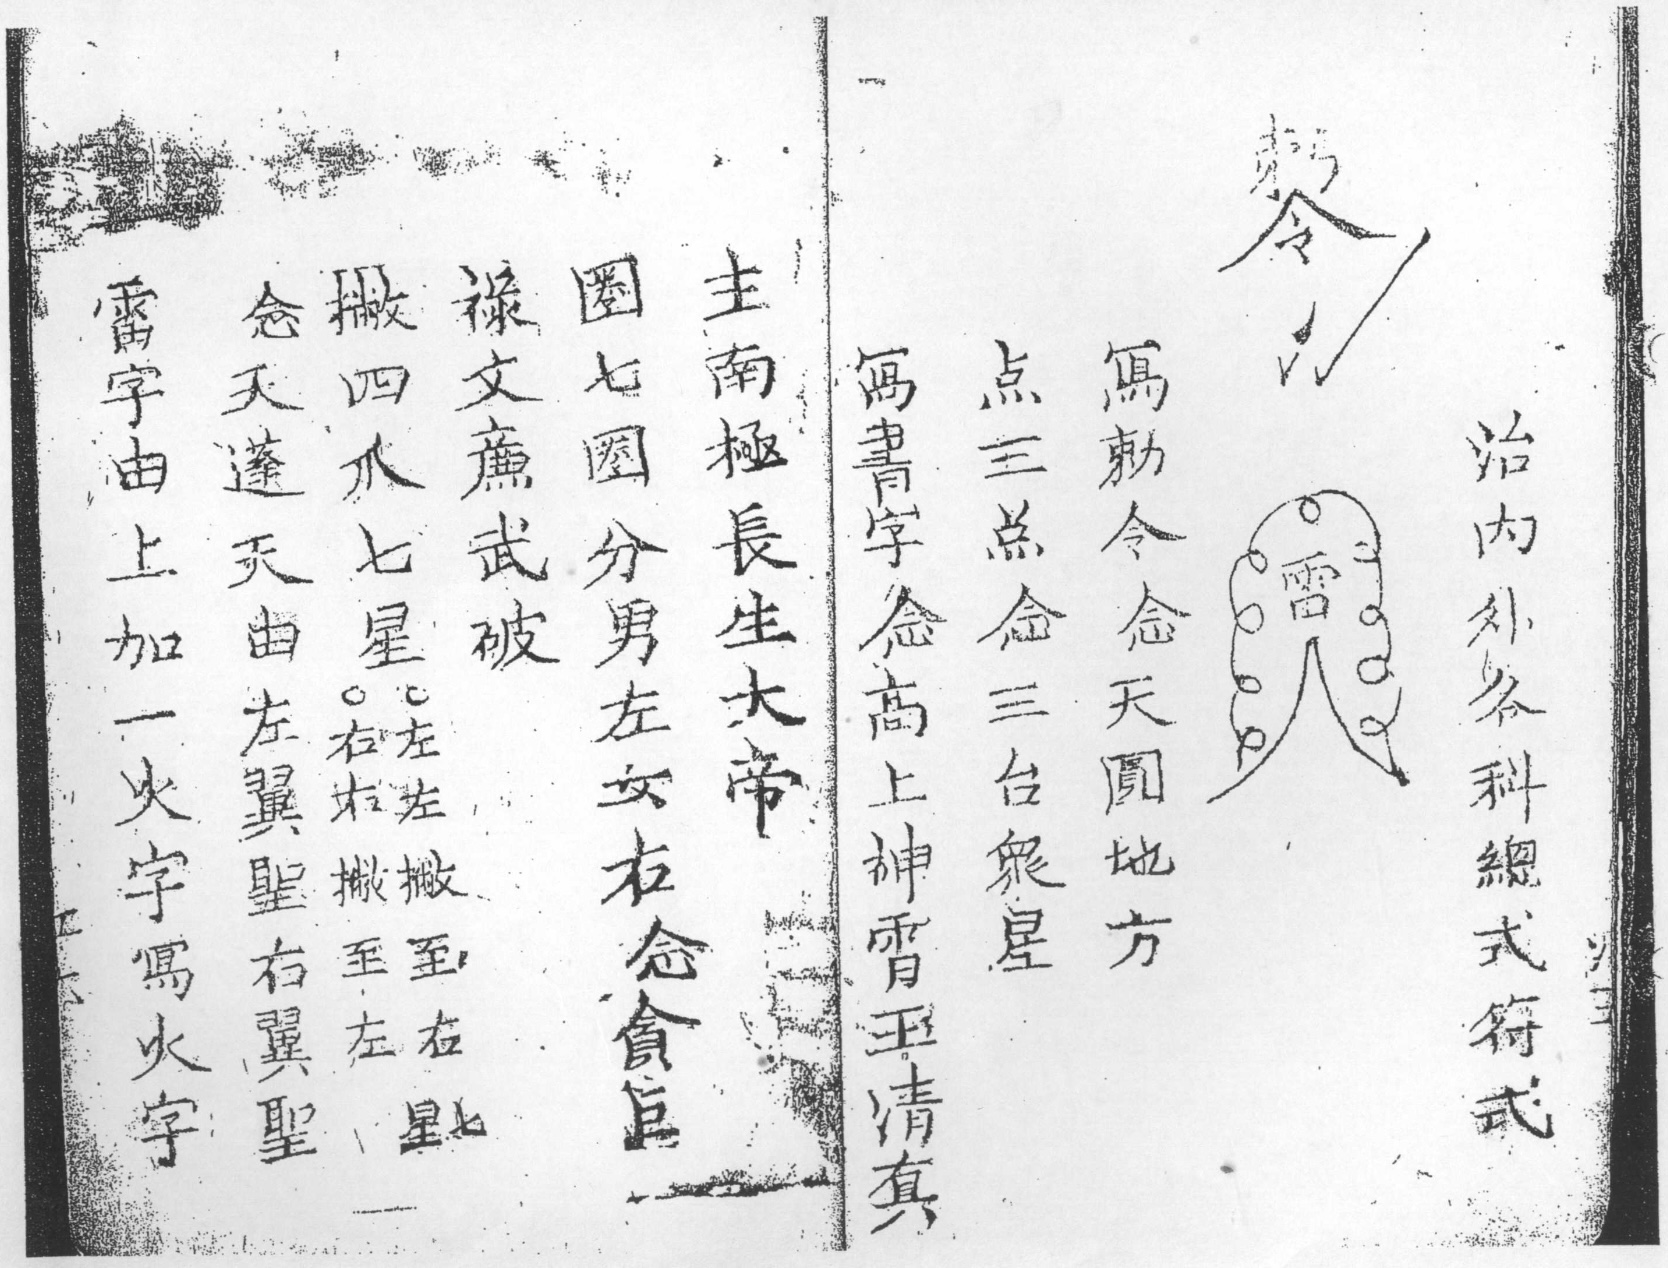 治内外各科總式符式
勅令
雷
寫勅令念天圓地方
点三点念三台衆星
寫書字念高上神霄玉清真
王南極長生大帝
圈七圈分男左女右念貪巨
祿文廉武破
撇四爪七星
左左撇至右星七
右右撇至左
念天蓬天由左翼聖右翼聖
雷字由上加一火字寫火字